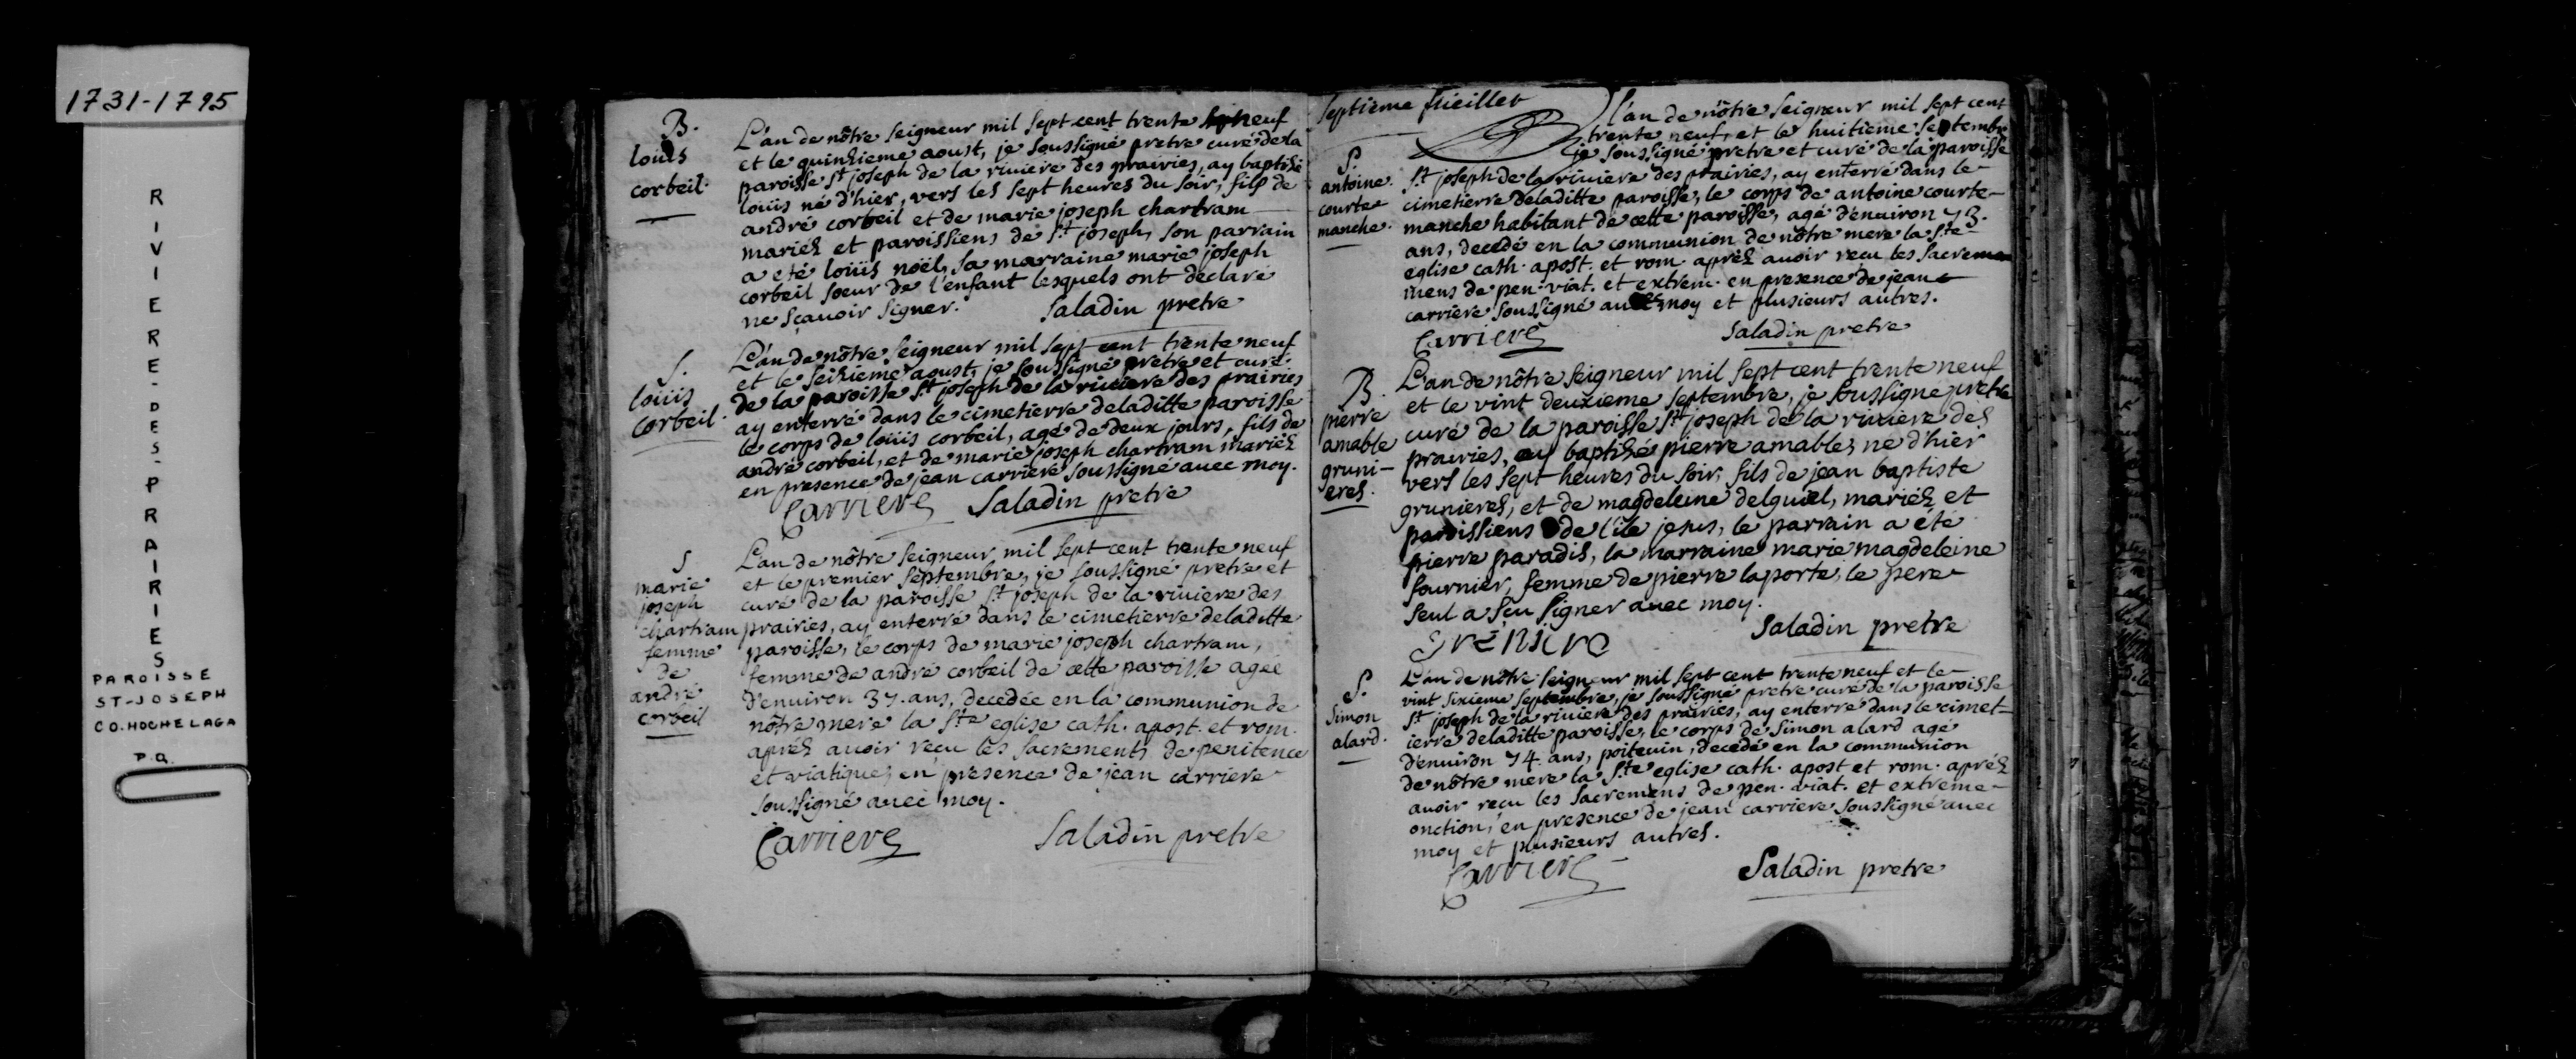 1731-1795
RIVIERE-DES-PRAIRIES
PAROISSE
ST-JOSEPH
CO. HOCHELAGA
P.Q.
B.
loüis
corbeil.
L'an de nôtre seigneur mil sept cent trente neuf
et le quinzieme aoust, je soussigné pretre curé de la
paroisse st joseph de la riviere des prairies, ay baptizé
loüis né d'hier, vers les sept heures du soir, fils de
andré corbeil et de marie joseph chartram
mariéz et paroissiens de st joseph, son parrain
a eté loüis noël, sa marraine marie joseph
corbeil soeur de l'enfant lesquels ont declaré
ne sçauoir signer. Saladin pretre
S.
loüis
corbeil.
L'an de nôtre seigneur mil sept cent trente neuf
et le seizieme aoust, je soussigné pretre et curé
de la paroisse st joseph de la riviere des prairies
ay enterré dans le cimetierre de laditte paroisse
le corps de loüis corbeil, agé de deux jours, fils de
andré corbeil, et de marie joseph chartram mariéz
en presence de jean carriere soussigné auec moy.
Carriere Saladin pretre
S
marie
joseph
chartram
femme
de
andré
corbeil
L'an de nôtre seigneur mil sept cent trente neuf
et le premier septembre, je soussigné pretre et
curé de la paroisse st joseph de la riviere des
prairies, ay enterré dans le cimetierre de laditte
paroisse, le corps de marie joseph chartram,
femme de andré corbeil de cette paroisse agée
d'enuiron 37. ans, decedée en la communion de
nôtre mere la ste eglise cath. apost. et rom.
apréz auoir reçu les sacrements de penitence
et viatique, en presence de jean carriere
soussigné auec moy.
Carriere Saladin pretre
septieme füeillet
S.
antoine
courte
manche.
l'an de nôtre seigneur mil sept cent
trente neuf, et le huitieme septembre
je soussigné pretre et curé de la paroisse
st joseph de la riviere des prairies, ay enterré dans le
cimetierre de laditte paroisse, le corps de antoine courte-
manche habitant de cette paroisse, agé d'enuiron 73.
ans, decedé en la communion de nôtre mere la ste
eglise cath. apost. et rom. apréz auoir reçu les
mens de pen. viat. et extrem. en presence de jean
carriere soussigné auec moy et plusieurs autres.
Carriere Saladin pretre
B.
pierre
amable
gruni-
eres.
L'an de nôtre seigneur mil sept cent trente neuf
et le vint deuxieme septembre, je soussigné pretre
curé de la paroisse st joseph de la riviere des
prairies, ay baptizé pierre amable, né d'hier
vers les sept heures du soir, fils de jean baptiste
grunieres, et de magdeleine delguiel, mariéz et
paroissiens de l'ile jesus, le parrain a été
pierre paradis, la marraine marie magdeleine
fournier, femme de pierre laporte, le pere
seul a sçu signer auec moy.
Saladin pretre
S.
simon
alard.
L'an de nôtre seigneur mil sept cent trente neuf et le
vint sixieme septembre, je soussigné pretre curé de la paroisse
st joseph de la riviere des prairies, ay enterré dans le cimet-
ierre de laditte paroisse, le corps de simon alard agé
d'enuiron 74. ans, poiteuin, decedé en la communion
de nôtre mere la ste eglise cath. apost et rom. apréz
auoir reçu les sacremens de pen. viat. et extreme
onction, en presence de jean carriere soussigné auec
moy et plusieurs autres.
Carriere Saladin pretre